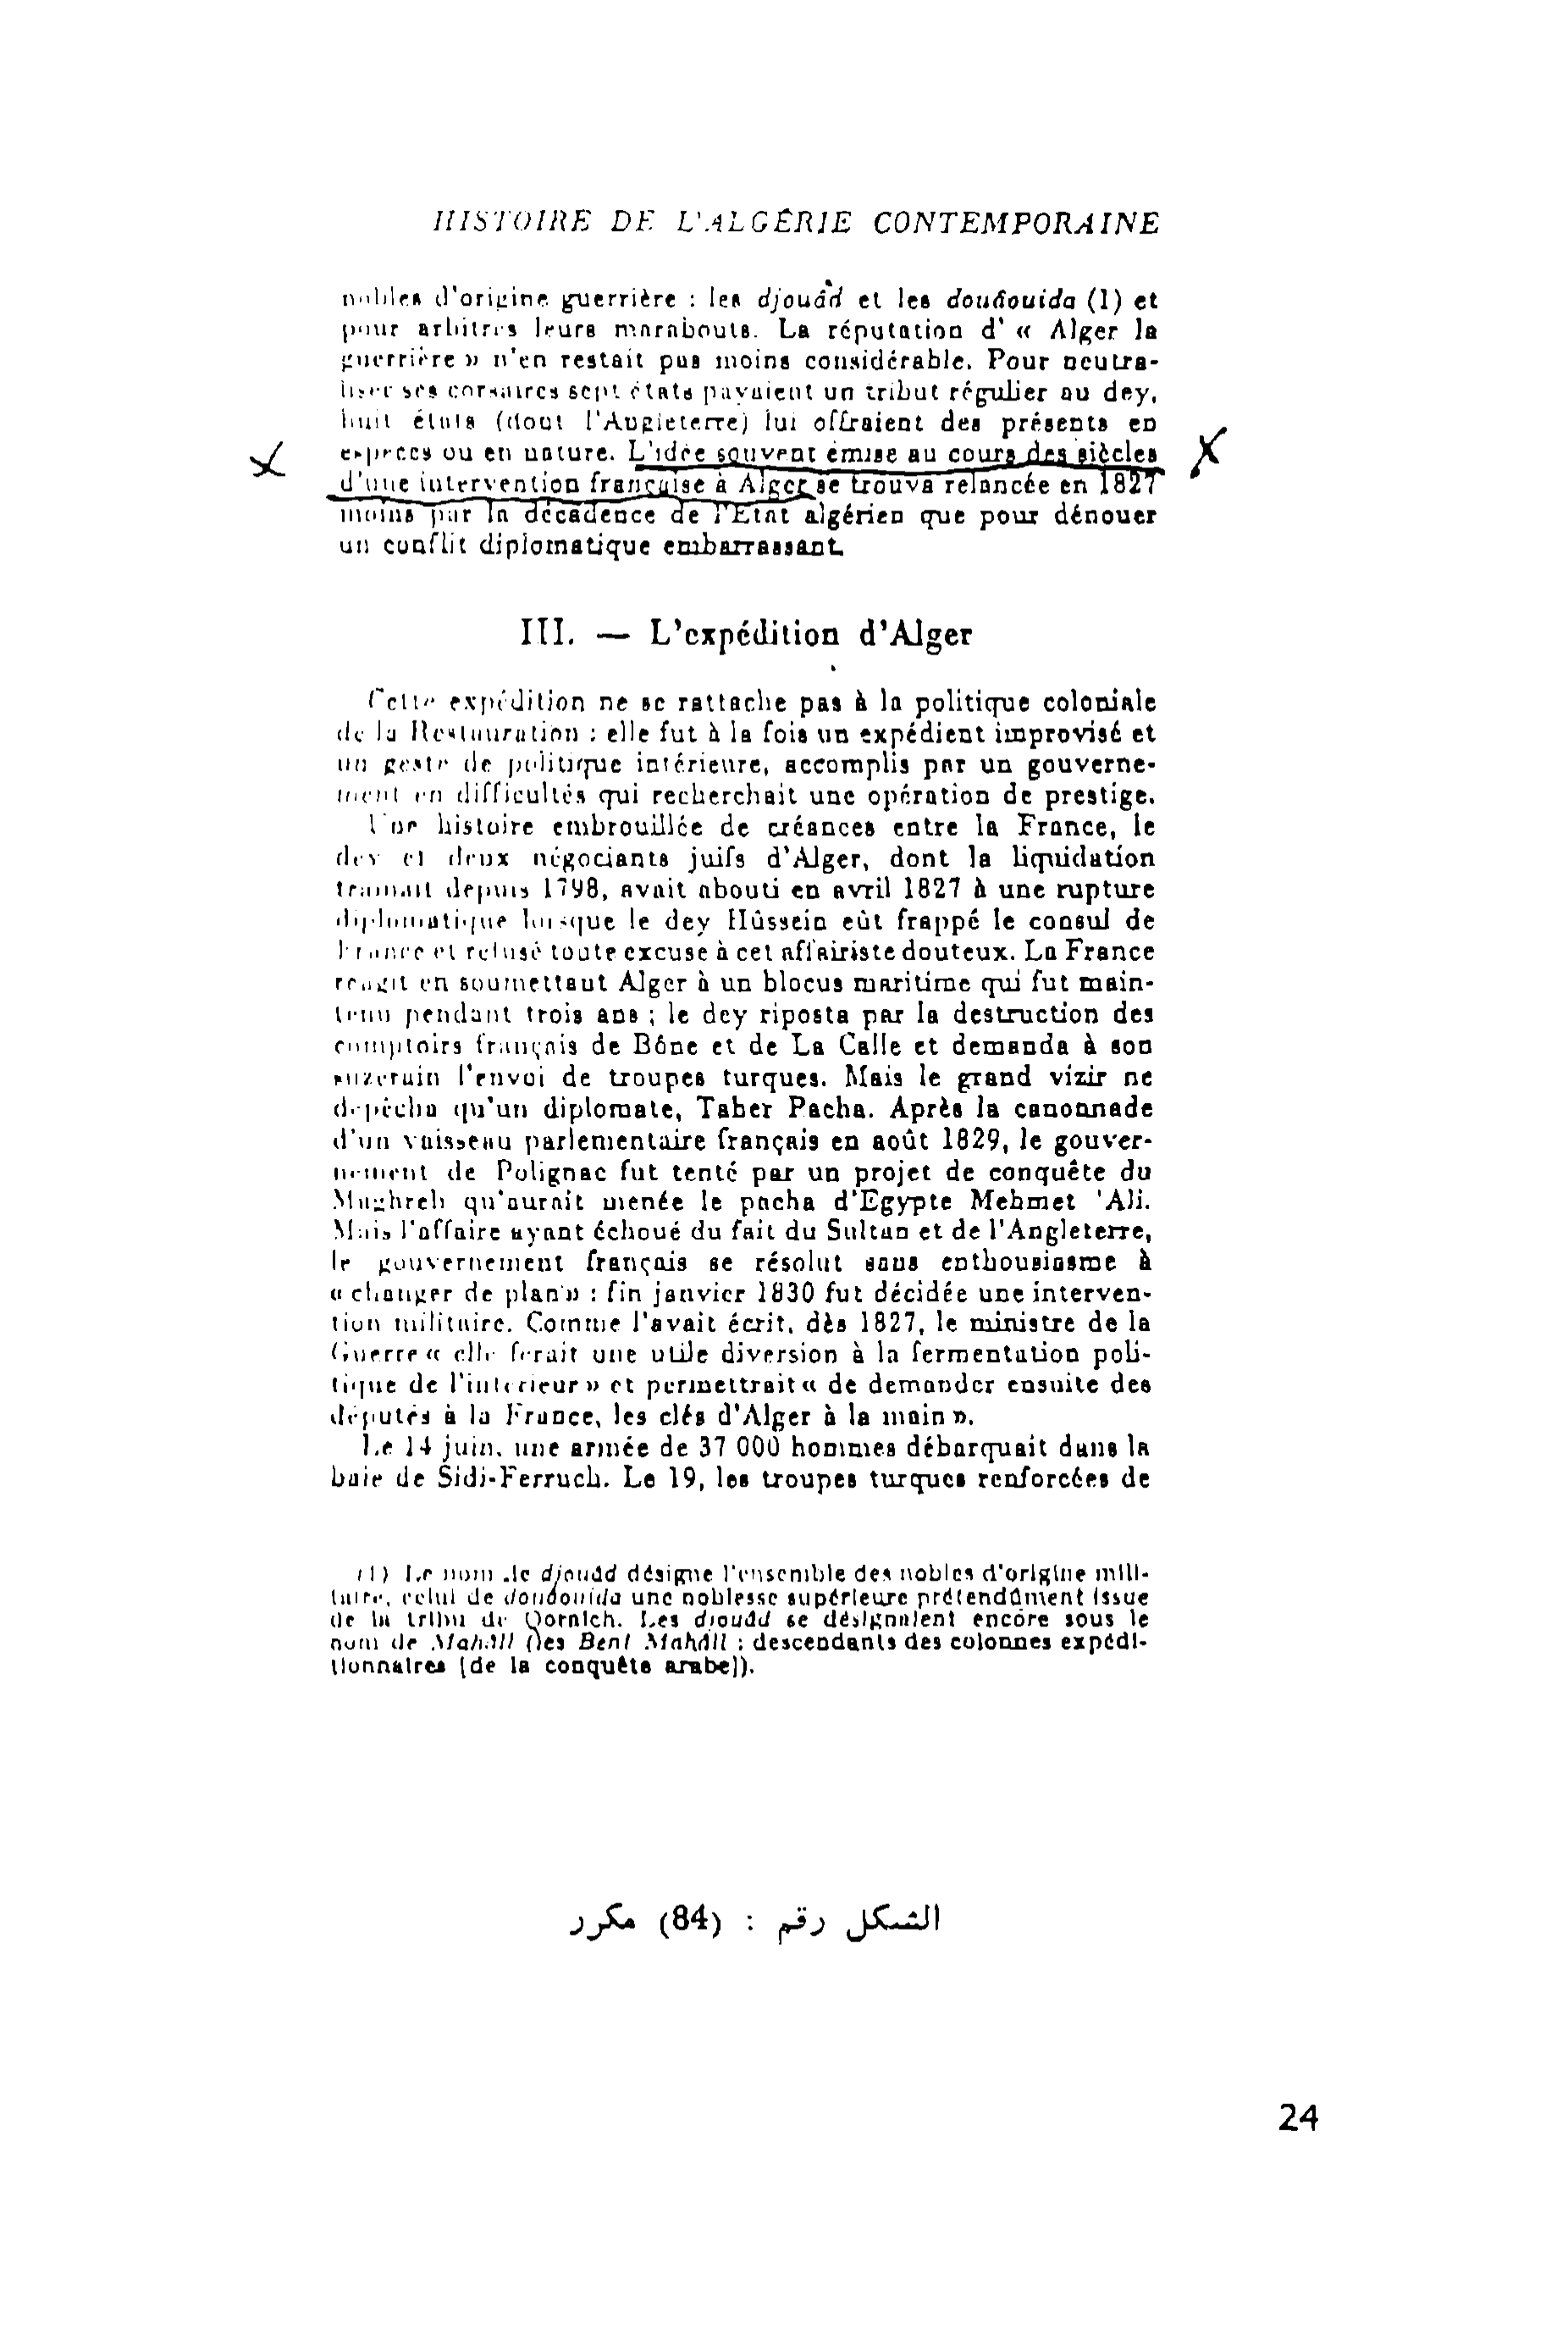 HISTOIRE DE L'ALGÉRIE CONTEMPORAINE
nobles d'origine guerrière : les djouâd et les douâouida (1) et
pour arbitres leurs marabouts. La réputation d' « Alger la
guerrière » n'en restait pas moins considérable. Pour neutra-
liser ses corsaires sept états payaient un tribut régulier au dey,
huit états (dont l'Angleterre) lui offraient des présents en
espèces ou en nature. L'idée souvent émise au cours des siècles
d'une intervention française à Alger se trouva relancée en 1827
moins par la décadence de l'État algérien que pour dénouer
un conflit diplomatique embarrassant.
III. — L'expédition d'Alger
Cette expédition ne se rattache pas à la politique coloniale
de la Restauration : elle fut à la fois un expédient improvisé et
un geste de politique intérieure, accomplis par un gouverne-
ment en difficultés qui recherchait une opération de prestige.
Une histoire embrouillée de créances entre la France, le
dey et deux négociants juifs d'Alger, dont la liquidation
traînait depuis 1798, avait abouti en avril 1827 à une rupture
diplomatique lorsque le dey Hûssein eût frappé le consul de
France et refusé toute excuse à cet affairiste douteux. La France
réagit en soumettant Alger à un blocus maritime qui fut main-
tenu pendant trois ans ; le dey riposta par la destruction des
comptoirs français de Bône et de La Calle et demanda à son
suzerain l'envoi de troupes turques. Mais le grand vizir ne
dépêcha qu'un diplomate, Taher Pacha. Après la canonnade
d'un vaisseau parlementaire français en août 1829, le gouver-
nement de Polignac fut tenté par un projet de conquête du
Maghreb qu'aurait menée le pacha d'Egypte Mehmet 'Ali.
Mais l'affaire ayant échoué du fait du Sultan et de l'Angleterre,
le gouvernement français se résolut sans enthousiasme à
« changer de plan » : fin janvier 1830 fut décidée une interven-
tion militaire. Comme l'avait écrit, dès 1827, le ministre de la
Guerre « elle ferait une utile diversion à la fermentation poli-
tique de l'intérieur » et permettrait « de demander ensuite des
députés à la France, les clés d'Alger à la main ».
Le 14 juin, une armée de 37 000 hommes débarquait dans la
baie de Sidi-Ferruch. Le 19, les troupes turques renforcées de
(1) Le nom de djouâd désigne l'ensemble des nobles d'origine mili-
taire, celui de douâouida une noblesse supérieure prétendûment issue
de la tribu de Qornich. Les djouâd se désignaient encore sous le
nom de Mahâll (les Beni Mahâll : descendants des colonnes expédi-
tionnaires [de la conquête arabe]).
الشكل رقم : (84) مكرر
24